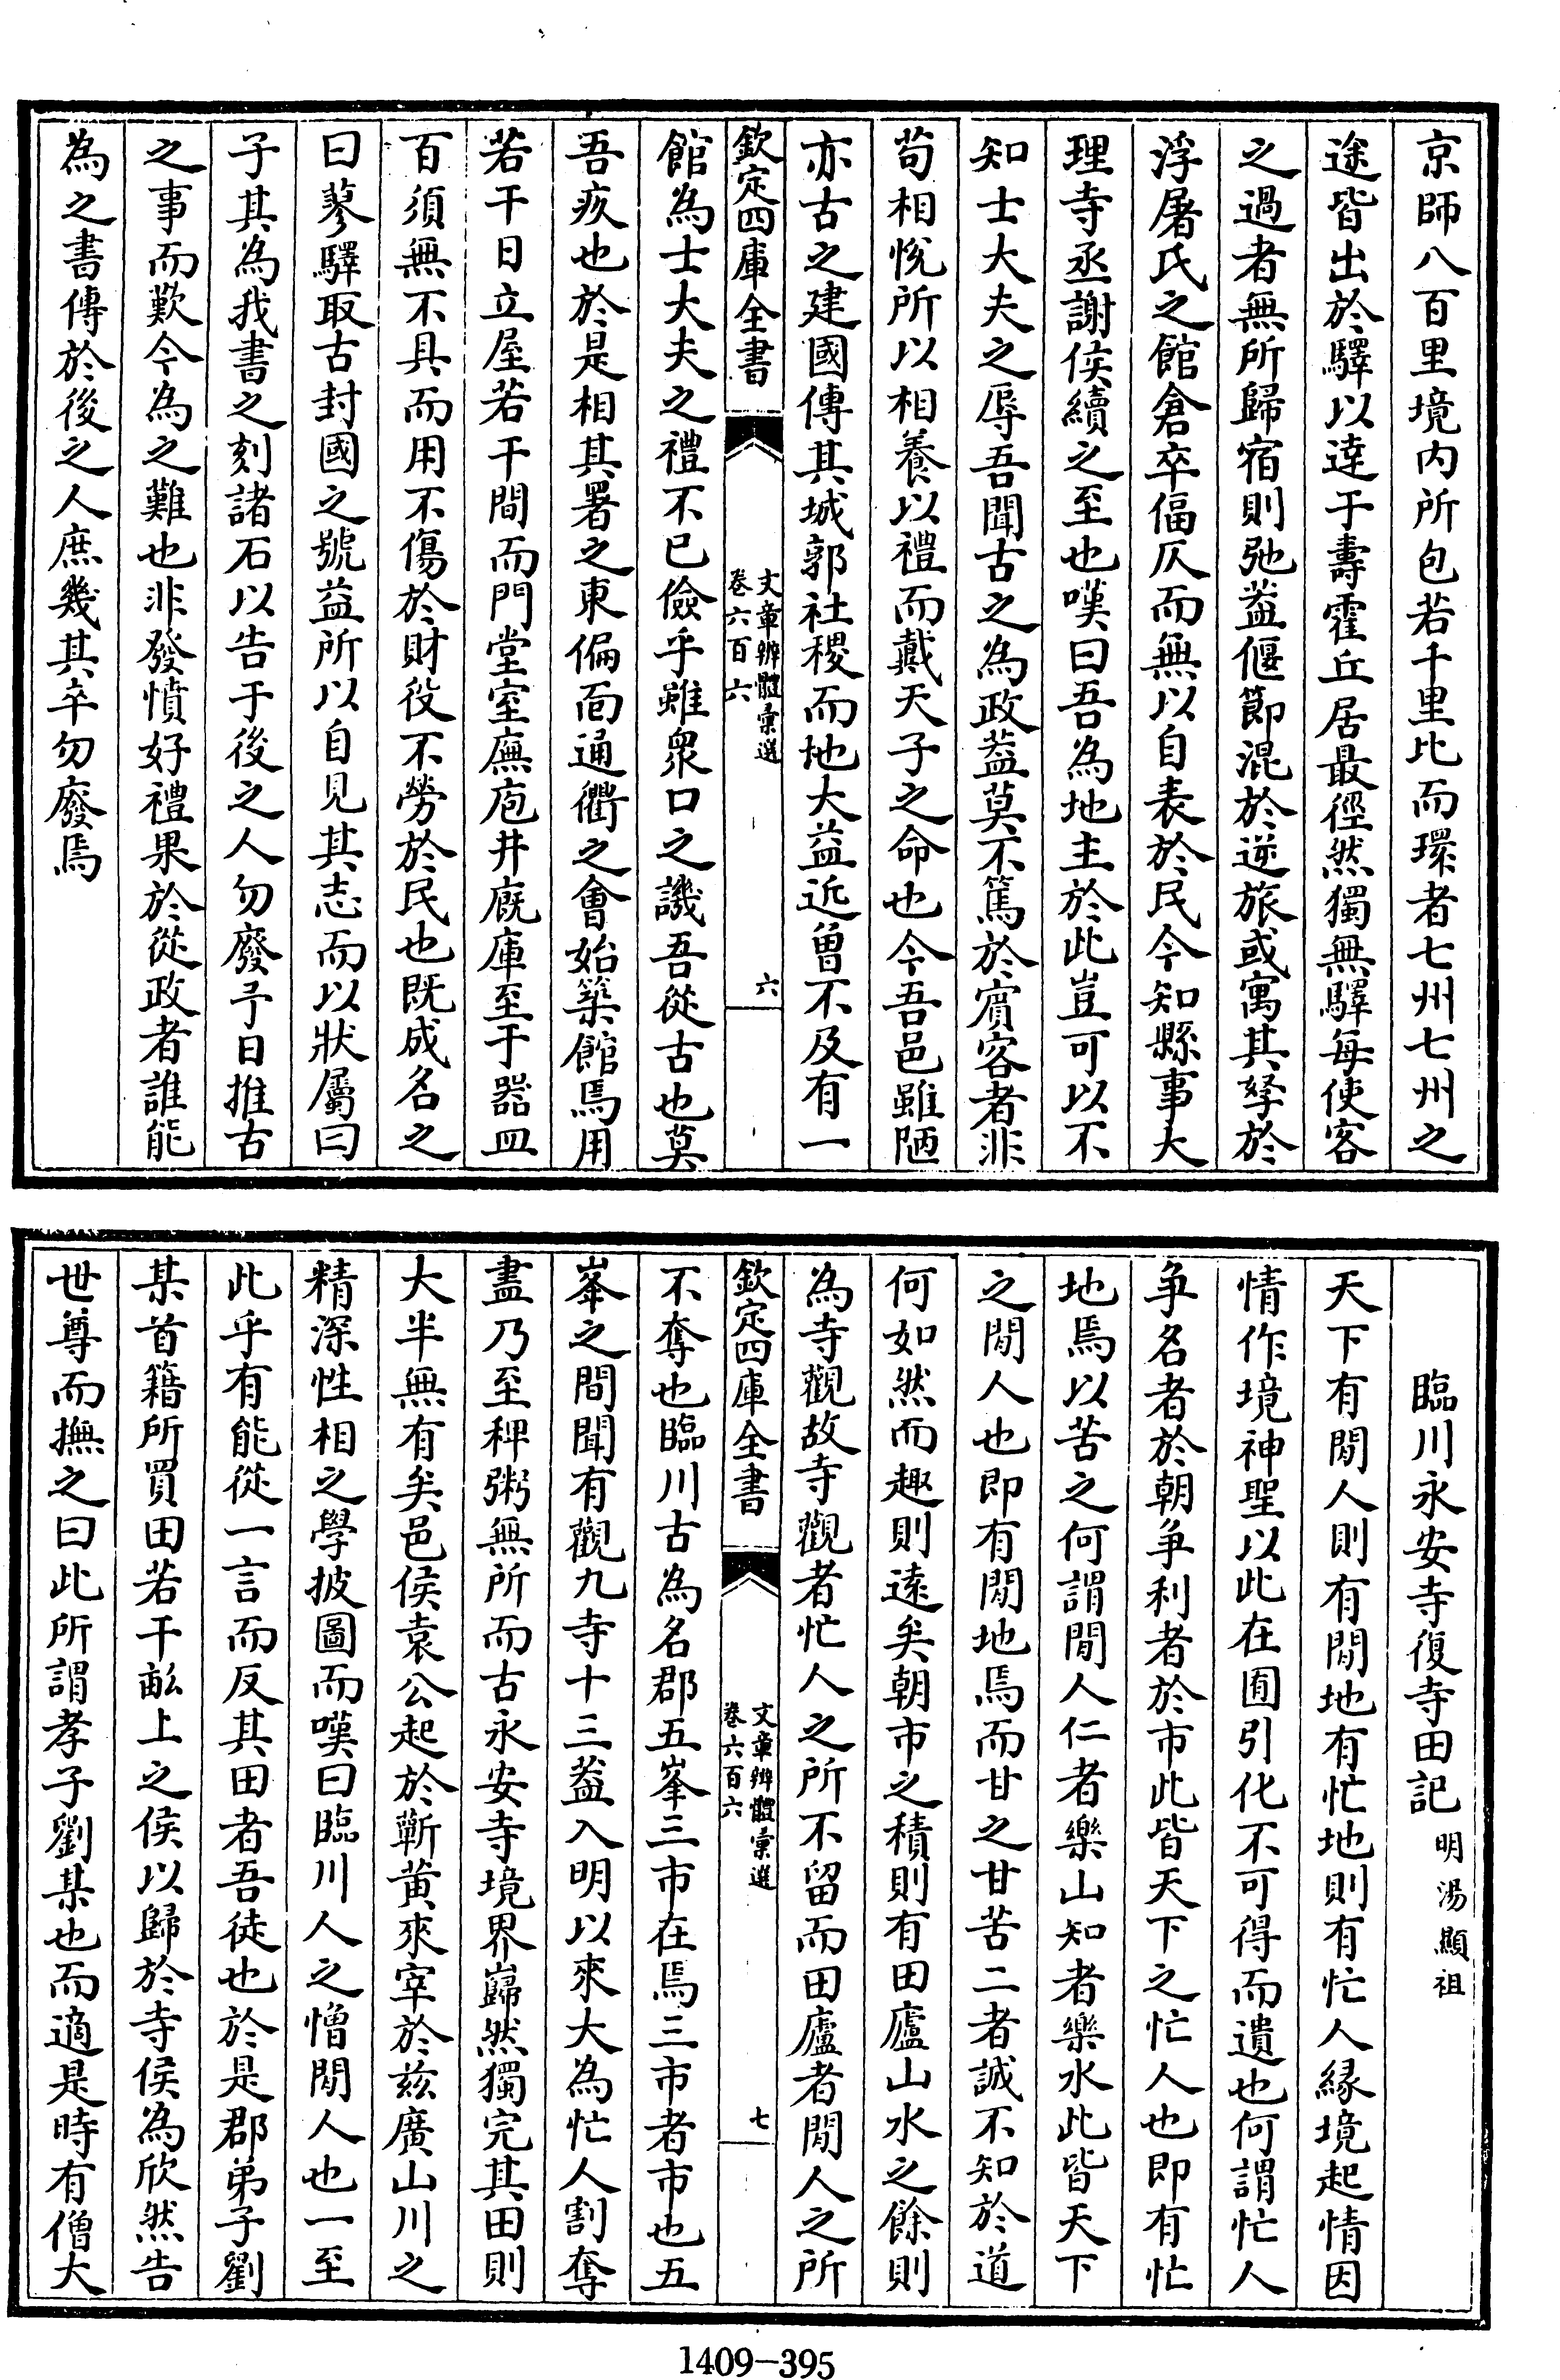 京師八百里境内所包若千里比而環者七州七州之
途皆出於驛以達于壽霍丘居最徑然獨無驛每使客
之過者無所歸宿則弛蓋偃節混於逆旅或寓其孥於
浮屠氏之館倉卒偪仄而無以自表於民今知縣事大
理寺丞謝侯續之至也嘆曰吾為地主於此豈可以不
知士大夫之辱吾聞古之為政蓋莫不篤於賓客者非
苟相悅所以相養以禮而戴天子之命也今吾邑雖陋
亦古之建國傳其城郭社稷而地大益近曾不及有一
欽定四庫全書
文章辨體彙選
卷六百六
六
館為士大夫之禮不已儉乎雖衆口之譏吾從古也莫
吾疚也於是相其署之東偏面通衢之會始築館焉用
若干日立屋若干間而門堂室廡庖井廐庫至于器皿
百須無不具而用不傷於財役不勞於民也既成名之
曰蓼驛取古封國之號益所以自見其志而以狀屬曰
子其為我書之刻諸石以告于後之人勿廢予日推古
之事而歎今為之難也非發憤好禮果於從政者誰能
為之書傳於後之人庶幾其卒勿廢焉
臨川永安寺復寺田記明湯顯祖
天下有閒人則有閒地有忙地則有忙人緣境起情因
情作境神聖以此在囿引化不可得而遺也何謂忙人
争名者於朝争利者於市此皆天下之忙人也即有忙
地焉以苦之何謂閒人仁者樂山知者樂水此皆天下
之閒人也即有閒地焉而甘之甘苦二者誠不知於道
何如然而趣則遠矣朝市之積則有田廬山水之餘則
為寺觀故寺觀者忙人之所不留而田廬者閒人之所
欽定四庫全書
文章辨體彙選
卷六百六
七
不奪也臨川古為名郡五峯三市在焉三市者市也五
峯之間聞有觀九寺十三蓋入明以來大為忙人割奪
盡乃至稗粥無所而古永安寺境界巋然獨完其田則
大半無有矣邑侯袁公起於蘄黄來宰於兹廣山川之
精深性相之學披圖而嘆曰臨川人之憎閒人也一至
此乎有能從一言而反其田者吾徒也於是郡弟子劉
某首籍所買田若干畝上之侯以歸於寺侯為欣然告
世尊而撫之曰此所謂孝子劉某也而適是時有僧大
1409-395